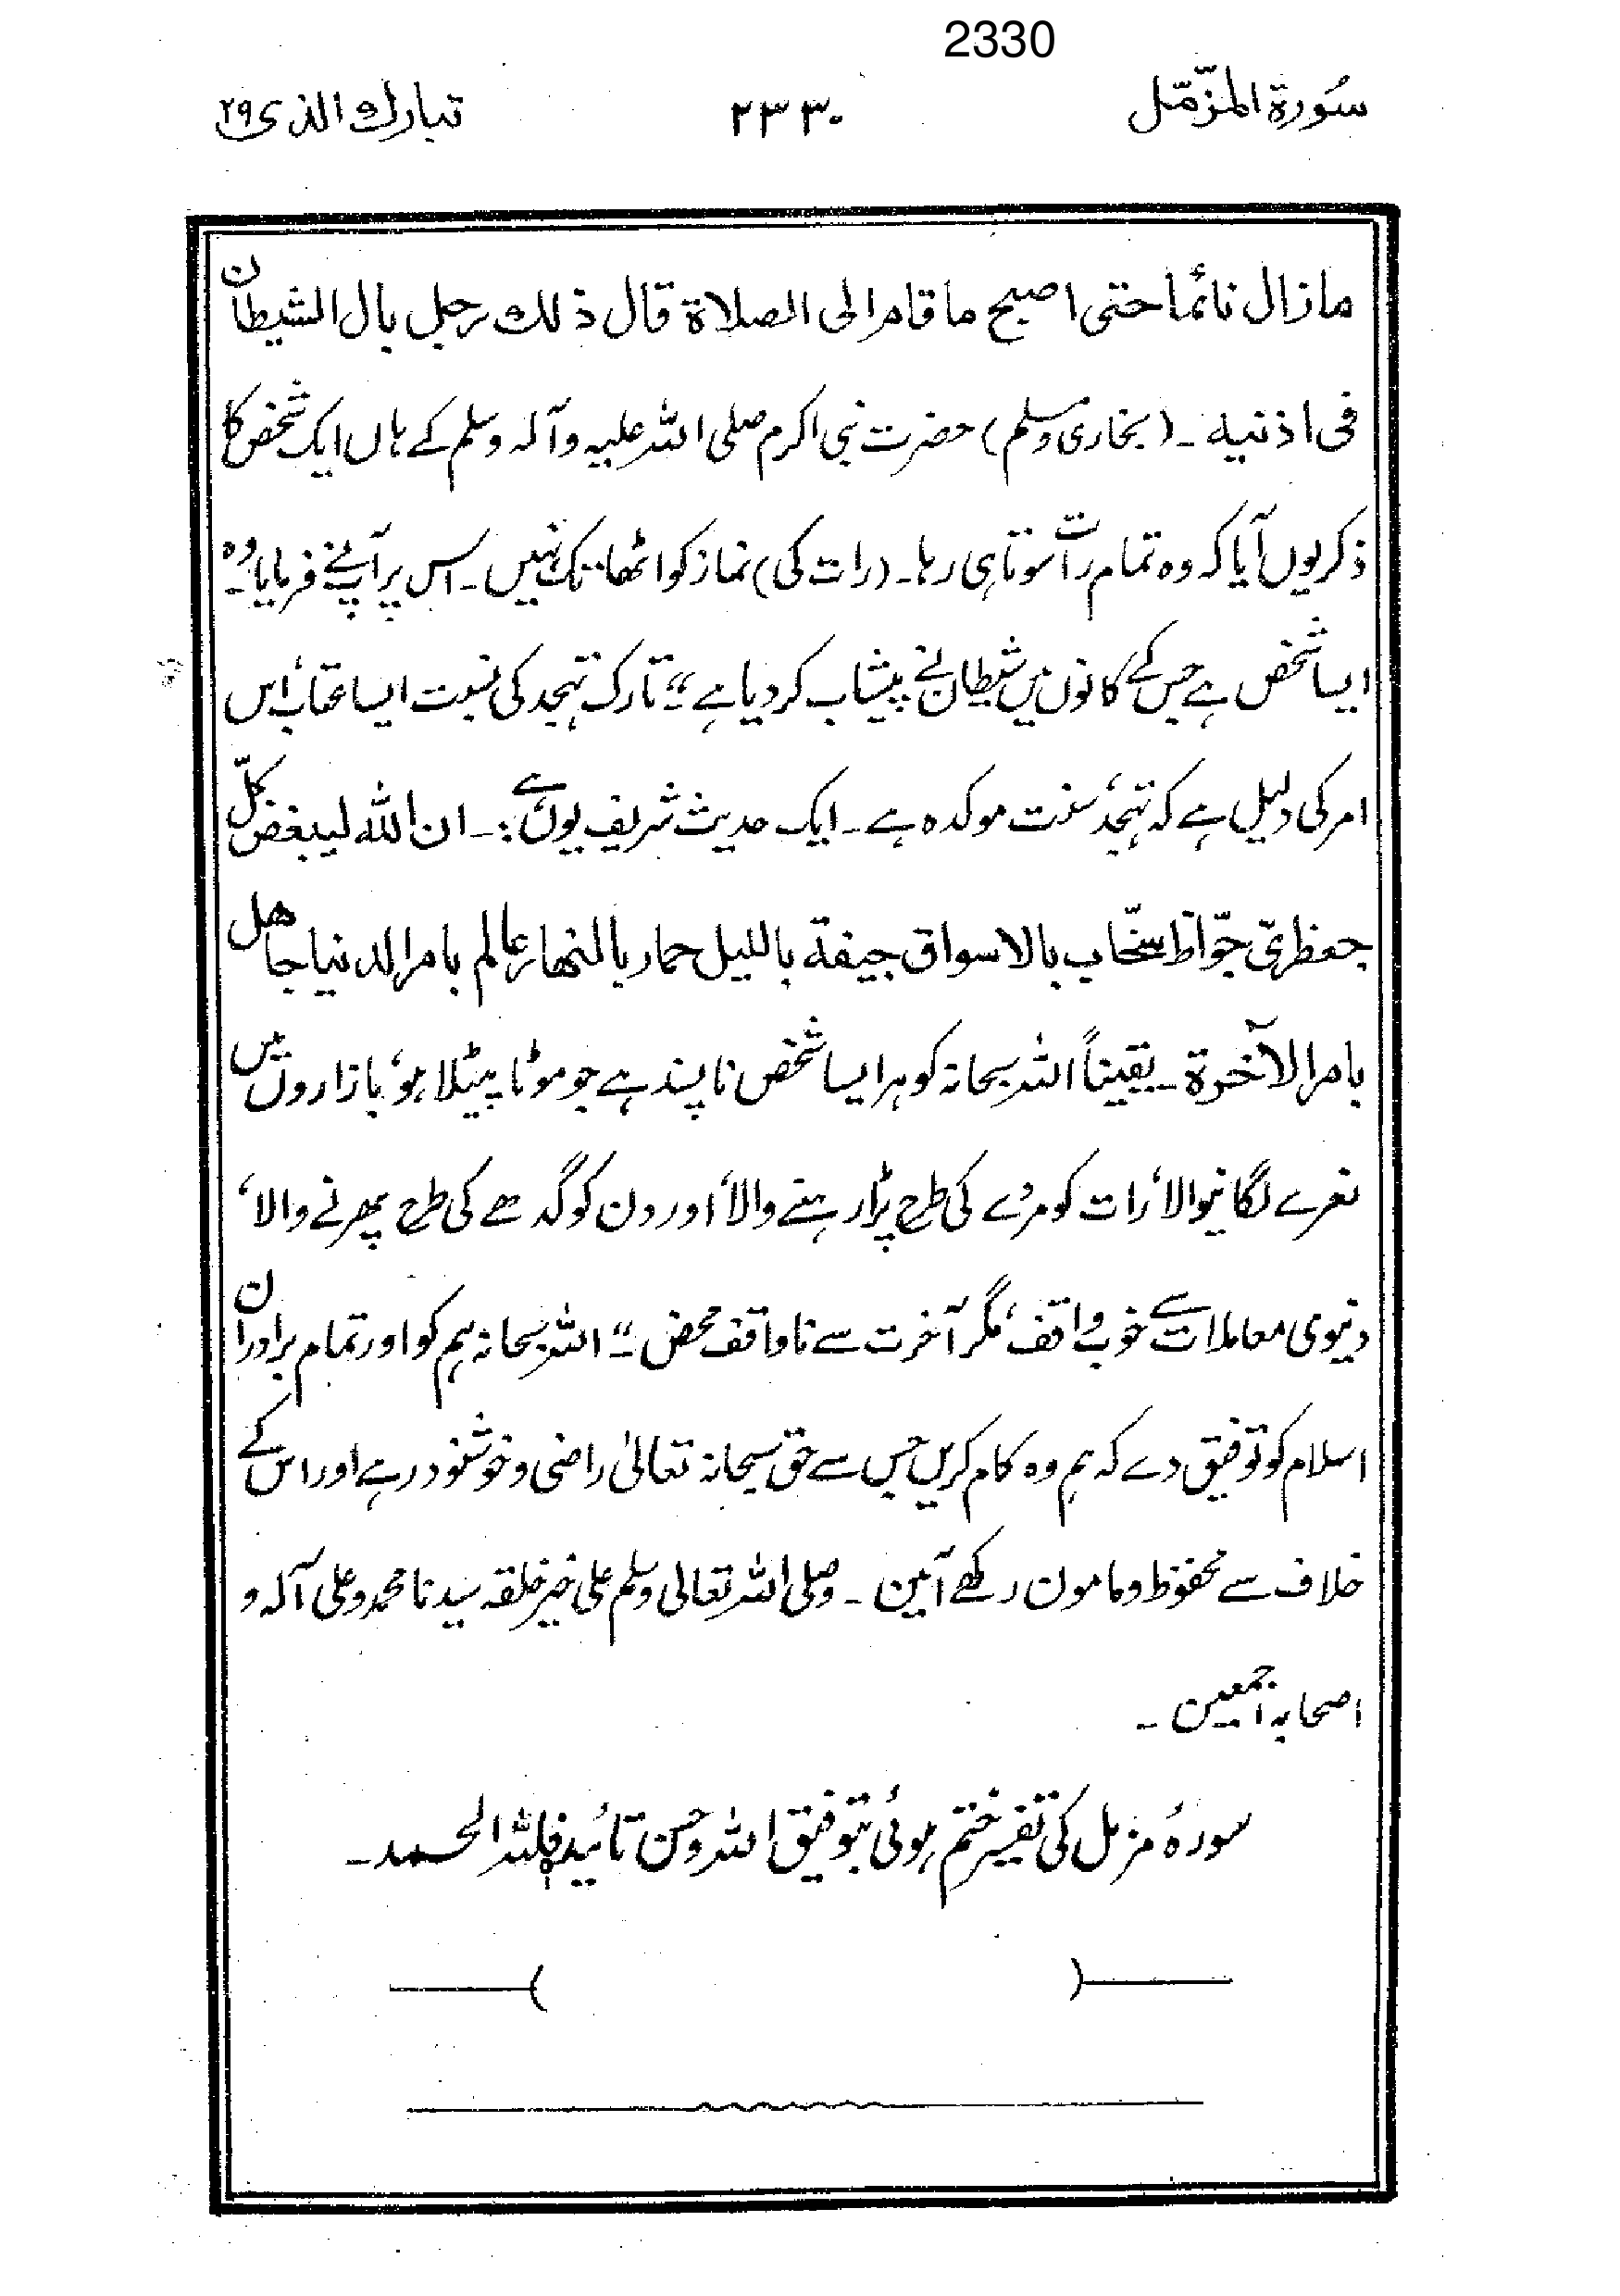 2330
سُورۃ المزّمّل
۲۳۳۰
تبارك الذی ۲۹
مازال نائما حتی اصبح ما قام الی الصلاة قال ذلك رجل بال الشیطان
فی اذنیه ۔ (بخاری ومسلم) حضرت نبی اکرم صلی اللہ علیہ وآلہ وسلم کے ہاں ایک شخص کا
ذکر یوں آیا کہ وہ تمام رات سوتا ہی رہا۔ (رات کی) نماز کو اٹھا تک نہیں ۔ اس پر آپ نے فرمایا: "وہ
ایسا شخص ہے جس کے کانوں میں شیطان نے پیشاب کر دیا ہے"۔ تارک تہجد کی نسبت ایسا عتاب، اس
امر کی دلیل ہے کہ تہجد، سنت موکدہ ہے ۔ ایک حدیث شریف یوں ہے :۔ ان اللہ لیبغض کلّ
جعظریّ جوّاظ سخّاب بالاسواق جیفة باللیل حمار بالنهار عالم بامر الدنیا جاهل
بامر الآخرة ۔ یقیناً اللہ سبحانہ کو ہر ایسا شخص ناپسند ہے جو موٹا پیٹلا ہو، بازاروں میں
نعرے لگانیوالا، رات کو مردے کی طرح پڑا رہنے والا، اور دن کو گدھے کی طرح پھرنے والا،
دنیوی معاملات سے خوب واقف، مگر آخرت سے ناواقف محض"۔ اللہ سبحانہ ہم کو اور تمام برادران
اسلام کو توفیق دے کہ ہم وہ کام کریں جس سے حق سبحانہ تعالیٰ راضی و خوشنود رہے اور اس کے
خلاف سے محفوظ و مامون رکھے آمین ۔ وصلی اللہ تعالی وسلم علی خیر خلقہ سیدنا محمد وعلی آلہ و
اصحابہ اجمعین ۔
سورۂ مزمل کی تفسیر ختم ہوئی بتوفیق اللہ وحسن تائیدہ فللہ الحمد ۔